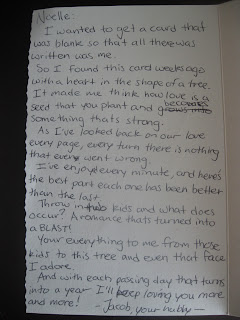 Noelle:
I wanted to get a card that
was blank so that all there
written was me.
So I found this card weeks ago
with a heart in the shape of a tree.
It made me think how love is a
seed that you plant and becomes
something that's strong.
As I've looked back on our love
every page, every turn there is nothing
that ever went wrong.
I've enjoy every minute, and here's
the best part each one has been better
than the last.
Throw in two kids and what does
occur? A romance that's turned into
a BLAST!
Your everything to me from those
kids to this tree and even that face
I adore.
And with each passing day that turns
into a year I'll keep loving you more
and more!
- Jacob, your hubby -